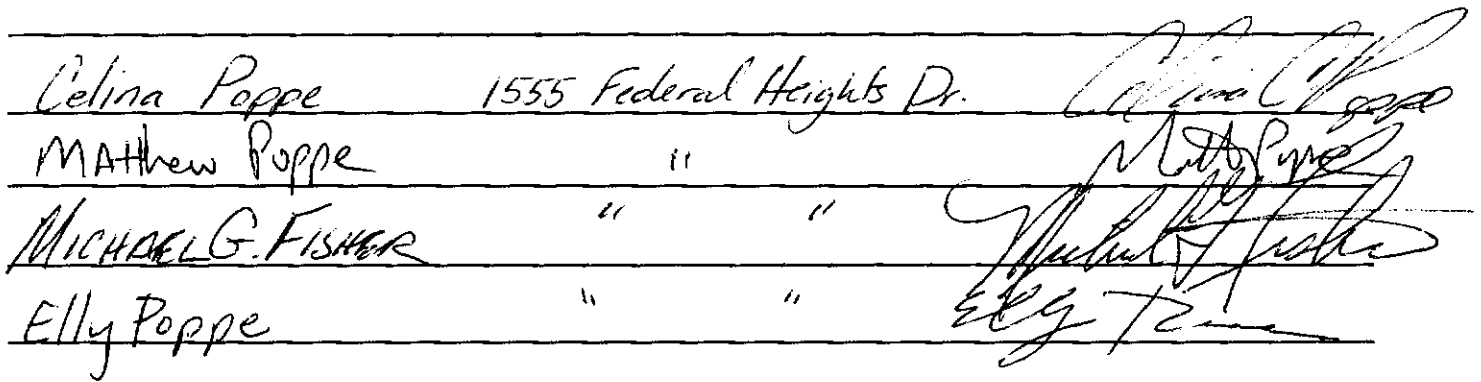 Celina Poppe 1555 Federal Heights Dr. Celina C Poppe
Matthew Poppe " Matt Poppe
MICHAEL G. FISHER " " Michael G Fisher
Elly Poppe " " Elly